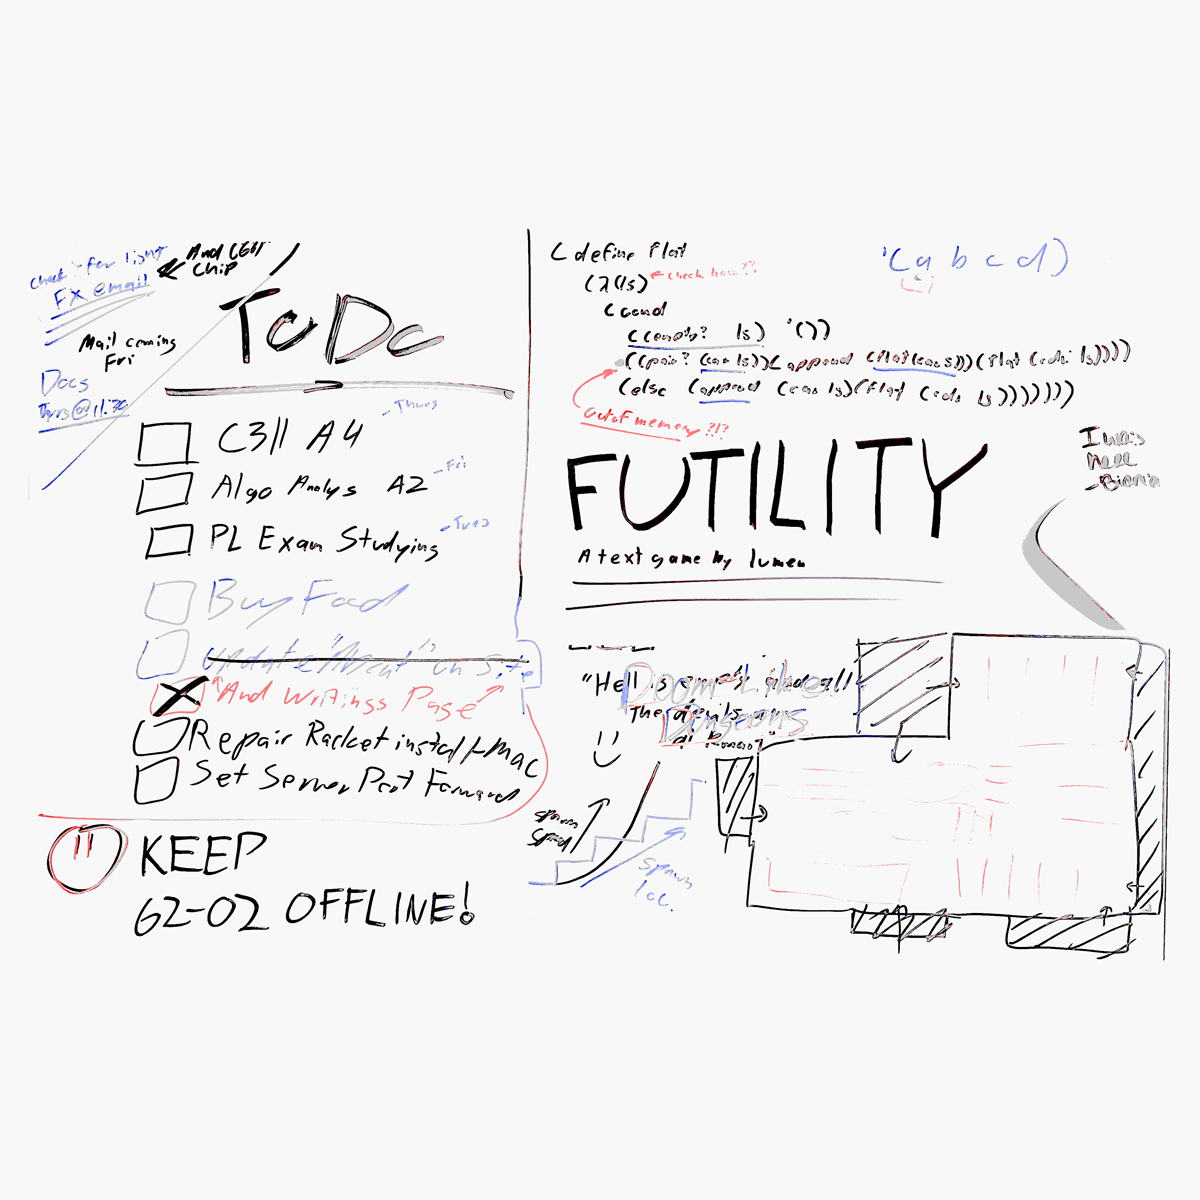 check for light
FX email
And C611
Chip
Mail coming
Fri
Docs
Thurs@11:30
ToDo
C311 A4 - Thurs
Algo Analys A2 - Fri
PL Exam Studying - Tues
Buy Food
Update "About" on Site
"And Writings Page"
Repair Racket install + mac
Set Server Port Forward
KEEP
62-02 OFFLINE!
(define flat
(λ(ls) ← check how??
(cond
((empty? ls) '())
((pair? (car ls))(append (flat(car ls))(flat (cdr ls))))
(else (append (car ls)(flat (cdr ls)))))))
out of memory?!?
'(a b c d)
FUTILITY
A text game by lumen
I was
here
"Hell is empty and all
The devils are
Doom Like
Dungeons
spawn
speed
spawn
loc.